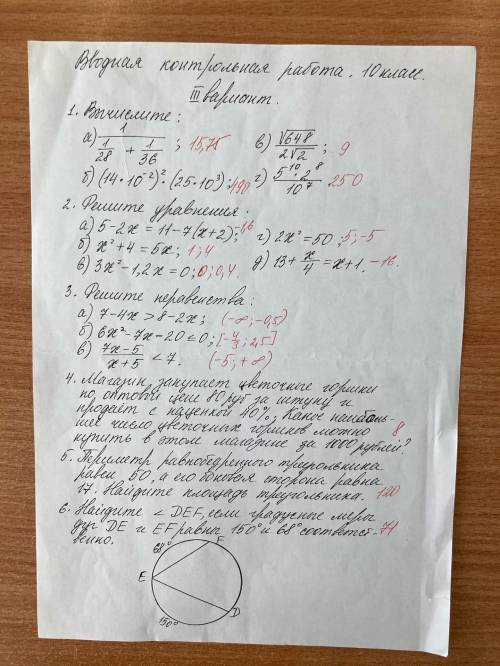 Вводная контрольная работа. 10 класс.
III вариант.
1. Вычислите:
а) 1/(1/28 + 1/36); 15,75 в) √648/(2√2); 9
б) (14·10⁻²)²·(25·10³); 490 г) 5¹⁰·2⁸/10⁷ 250
2. Решите уравнения:
а) 5-2x = 11-7(x+2); -1,6
б) x²+4 = 5x; 1; 4 г) 2x² = 50; 5; -5
в) 3x²-1,2x = 0; 0; 0,4. д) 13 + x/4 = x+1. -16.
3. Решите неравенства:
а) 7-4x > 8-2x; (-∞; -0,5)
б) 6x²-7x-20 ≤ 0; [-4/3; 2,5]
в) (7x-5)/(x+5) < 7. (-5; +∞)
4. Магазин закупает цветочные горшки
по оптовой цене 80 руб за штуку и
продает с наценкой 40%. Какое наиболь-
шее число цветочных горшков можно 8
купить в этом магазине за 1000 рублей?
5. Периметр равнобедренного треугольника
равен 50, а его боковая сторона равна
17. Найдите площадь треугольника. 120
6. Найдите ∠DEF, если градусные меры
дуг DE и EF равны 150° и 68° соответст- 71
венно.
F
68°
E
D
150°